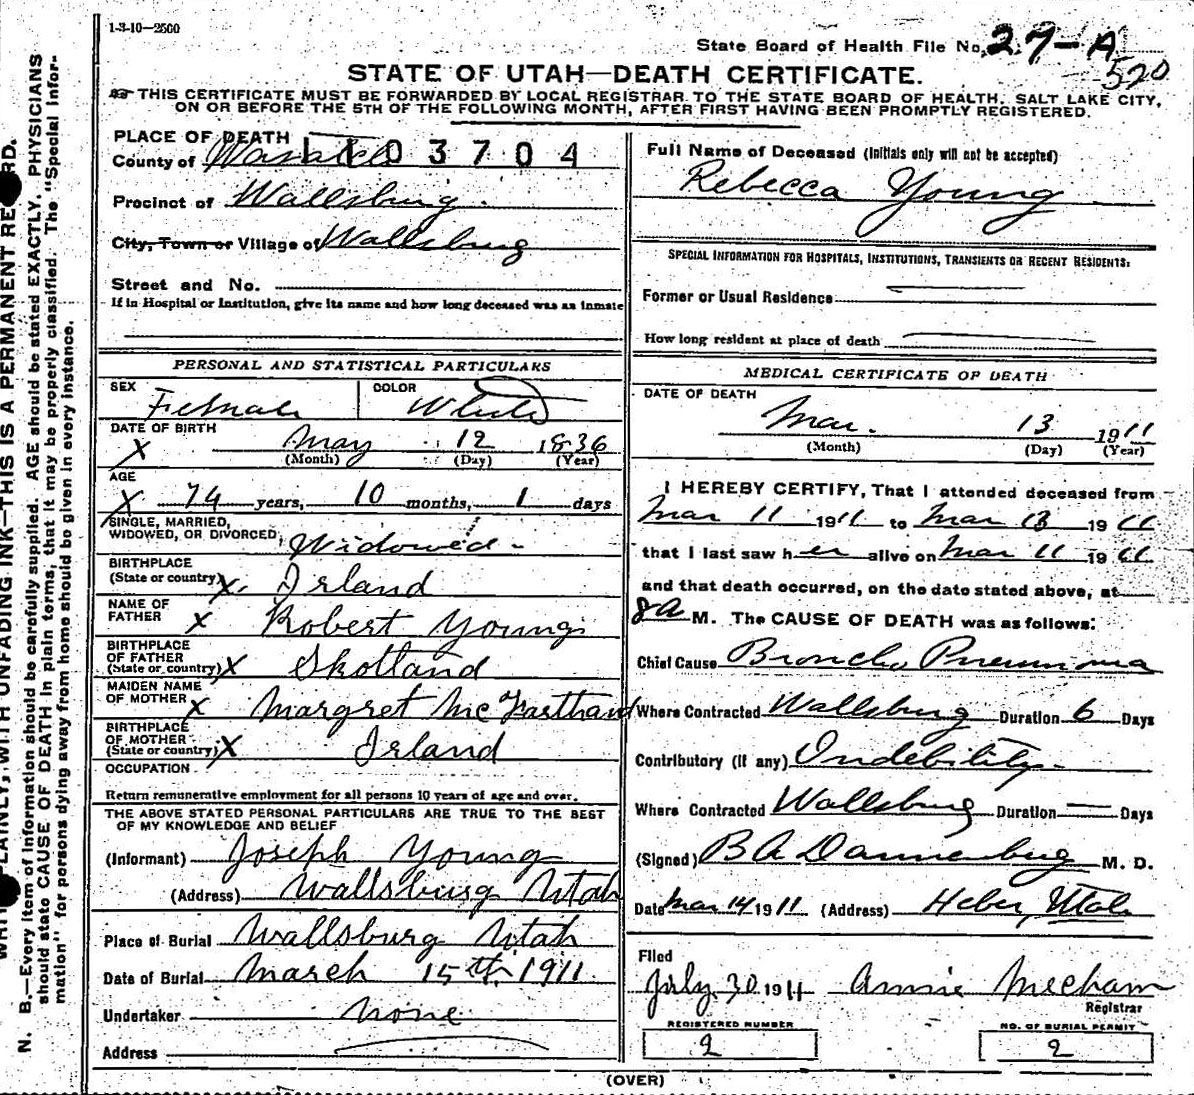 1-3-10—2500
State Board of Health File No. 27-A
520
STATE OF UTAH—DEATH CERTIFICATE.
THIS CERTIFICATE MUST BE FORWARDED BY LOCAL REGISTRAR TO THE STATE BOARD OF HEALTH, SALT LAKE CITY,
ON OR BEFORE THE 5TH OF THE FOLLOWING MONTH, AFTER FIRST HAVING BEEN PROMPTLY REGISTERED.
PLACE OF DEATH
County of Wasatch 1103704
Precinct of Wallsburg.
City, Town or Village of Wallsburg
Street and No.
If in Hospital or Institution, give its name and how long deceased was an inmate
PERSONAL AND STATISTICAL PARTICULARS
SEX Female COLOR White
DATE OF BIRTH
X May 12 1836
(Month) (Day) (Year)
AGE
X 74 years, 10 months, 1 days
SINGLE, MARRIED,
WIDOWED, OR DIVORCED Widowed-
BIRTHPLACE
(State or country) X Irland
NAME OF
FATHER X Robert Young
BIRTHPLACE
OF FATHER
(State or country) X Skotland
MAIDEN NAME
OF MOTHER X Margret McFarthand
BIRTHPLACE
OF MOTHER
(State or country) X Irland
OCCUPATION
Return remunerative employment for all persons 10 years of age and over.
THE ABOVE STATED PERSONAL PARTICULARS ARE TRUE TO THE BEST
OF MY KNOWLEDGE AND BELIEF
(Informant) Joseph Young
(Address) Wallsburg Utah
Place of Burial Wallsburg Utah
Date of Burial March 15th 1911.
Undertaker none
Address
Full Name of Deceased (Initials only will not be accepted)
Rebecca Young
SPECIAL INFORMATION FOR HOSPITALS, INSTITUTIONS, TRANSIENTS OR RECENT RESIDENTS:
Former or Usual Residence
How long resident at place of death
MEDICAL CERTIFICATE OF DEATH
DATE OF DEATH
Mar. 13 1911
(Month) (Day) (Year)
I HEREBY CERTIFY, That I attended deceased from
Mar 11 1911 to Mar 13 1911
that I last saw her alive on Mar 11 1911
and that death occurred, on the date stated above, at
8 A M. The CAUSE OF DEATH was as follows:
Chief Cause Broncho Pneumonia
Where Contracted Wallsburg Duration 6 Days
Contributory (if any) Indebility-
Where Contracted Wallsburg Duration — Days
(Signed) B A Dannenburg M. D.
Date Mar 14 1911 (Address) Heber, Utah
Filed
July 30 1911 Annie Mecham
Registrar
REGISTERED NUMBER
2
NO. OF BURIAL PERMIT
2
(OVER)
PLAINLY, WITH UNFADING INK—THIS IS A PERMANENT RECORD.
N. B.—Every item of information should be carefully supplied. AGE should be stated EXACTLY. PHYSICIANS
should state CAUSE OF DEATH in plain terms, that it may be properly classified. The "Special Infor-
mation" for persons dying away from home should be given in every instance.